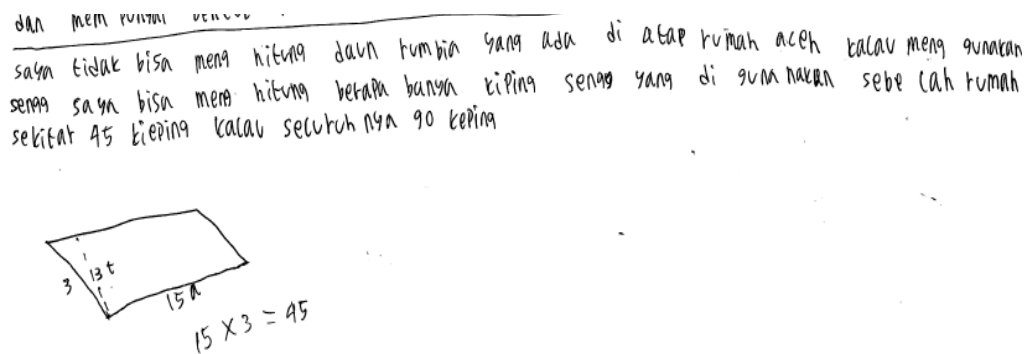 dan mem punyai
saya tidak bisa meng hitung daun rumbia yang ada di atap rumah aceh kalau meng gunakan
seng saya bisa meng hitung berapa banya kiping seng yang di guna nakan sebe lah rumah
sekitar 45 kieping kalau seluruh nya 90 keping
3
13 t
15 a
15 × 3 = 45